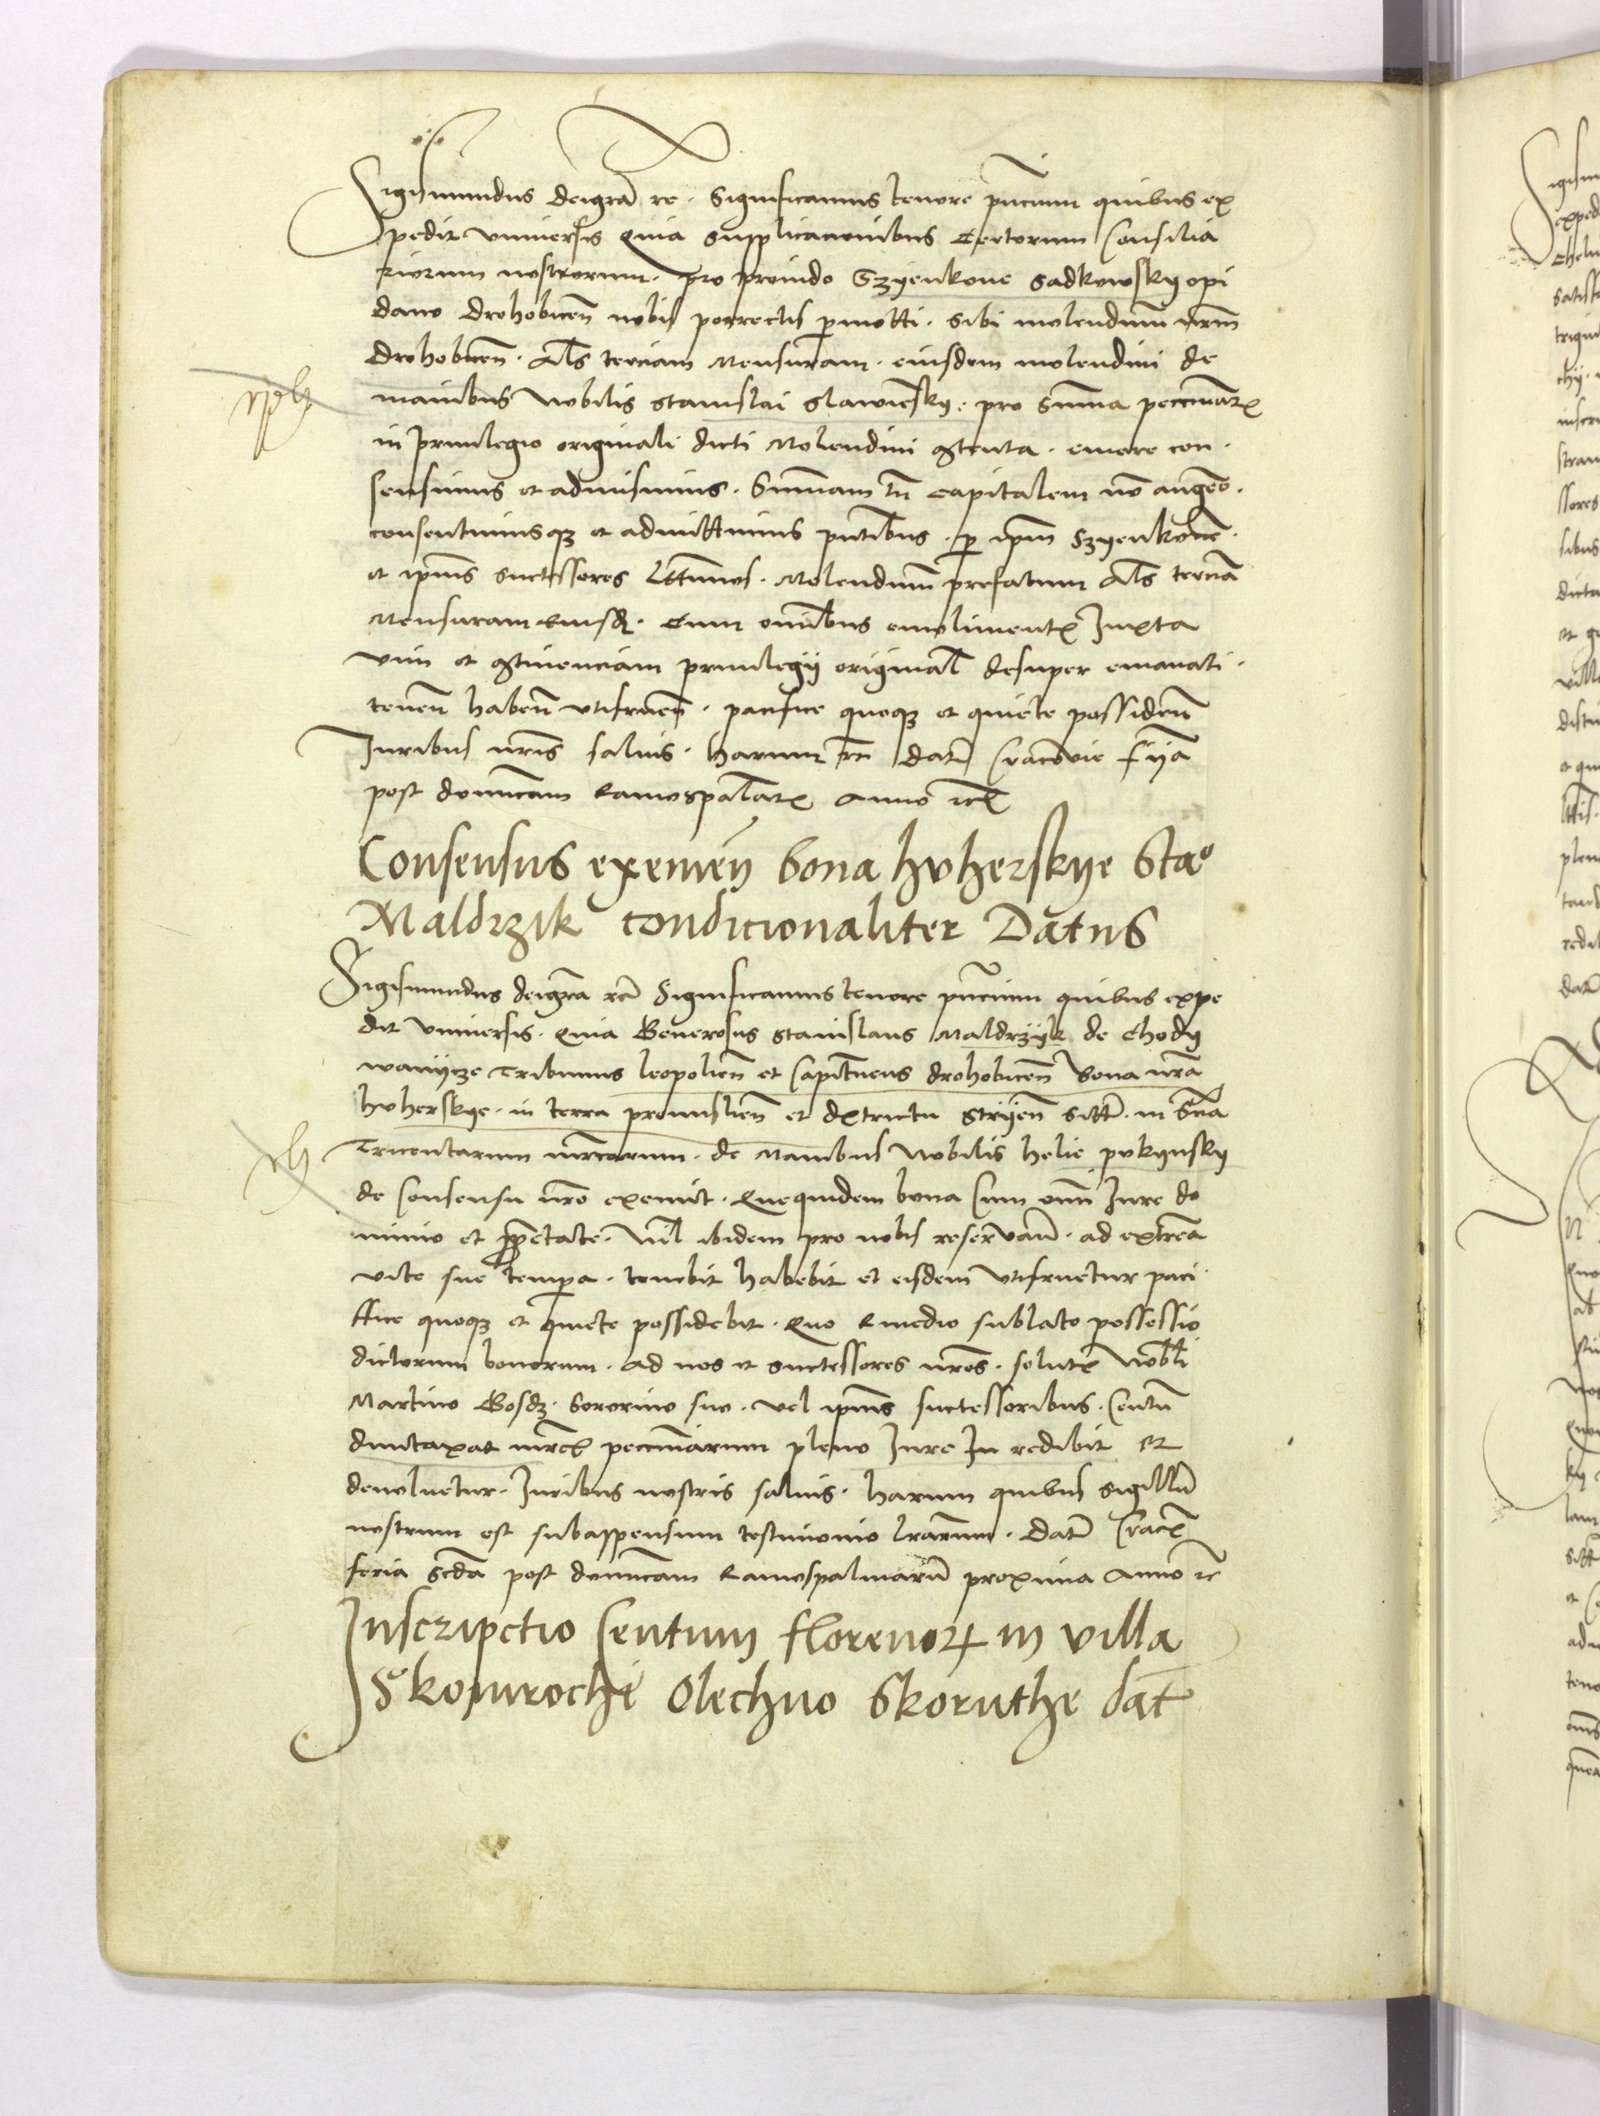 Sigismundus deigrā rc. Significamus tenore pn̄cium quibus ex
pedit vniuersis Quia supplicacionibus Certorum Consilia
riorum nostrorum. pro prouido Szyenkone Sadkowsky opi
dano Drohobicen̄ nobis porrectis p̄moti. Sibi molendinū nrm̄
Drohobicen̄. Als̄ terciam Mensuram. eiusdem molendini de
manibus Nobilis Stanislai Slawiensky. pro Sum̄a peccuniarꝝ
in priuilegio originali dicti Molendini ꝯtenta. emere con.
sensimus et admisimus. Sum̄am tn̄ Capitalem nō augen̄.
consentimusqꝫ et admittimus pn̄tibus. p̄ ipm̄ Szyenkonē.
et ipius successores lttimos. Molendinū prefatum Als̄ terciā
Mensuram eiusdē. Cum om̄ibus emolimentꝭ Iuxta
vim et ꝯtinenciam priuilegij originaľ desuper emanati.
tenen̄ haben̄ vtifruen̄. pacifice quoqꝫ et quiete possiden̄
Iuribus nrīs saluis. harum rc̄ Dat̄ Cracovie f ija
post domīcam Ramispalmarꝝ Anno rc̄
Consensus eximen̄ bona huherskye Stāo
Maldrzik condicionaliter Datus
Sigismundus deigrā rc̄ Significamus tenore pn̄cium quibus expe
dit vniuersis. Quia Generosus Stanislaus Maldrzyk de Chody
wanycze Tribunus leopolien̄ et Capitaneus drohobicen̄ bona nrā
huherskye. in terra premislien̄ et dꝭtrictu Stryen̄ sitā. in Sūa
Tricentarum mrcarum. de Manibus Nobilis helie pukynsky
de Consensu nrō exemit. Quequidem bona Cum om̄i Iure do
minio et ꝓprietate. Niľ ibidem pro nobis reseruan̄. ad extrema
vite sue tempora. tenebit habebit et eisdem vtifruetur paci
ffice quoqꝫ et quiete possidebit. Quo e medio sublato possessio
dictorum bonorum. ad nos et successores nrōs. solutꝭ Nobli
Martino Sororino suo. vel ipius successoribus. Centū
duntaxat mrcꝭ peccuniarum pleno Iure In redibit et
deuoluetur. Iuribus nostris saluis. harum quibus Sigillū
nostrum est subappensum testimonio lrārum. Dat̄ Cracꝭ
feria Scdā post domīcam Ramispalmarū proxima Anno rc
Inscripctio Centum florenorꝝ in villa
Skomrochi Olechno Skoruthe dat̄